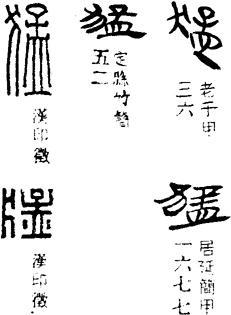 猛
老子甲
三六
猛
定縣竹簡
五二
猛
漢印徵
猛
居延簡甲
一六七七
猛
漢印徵